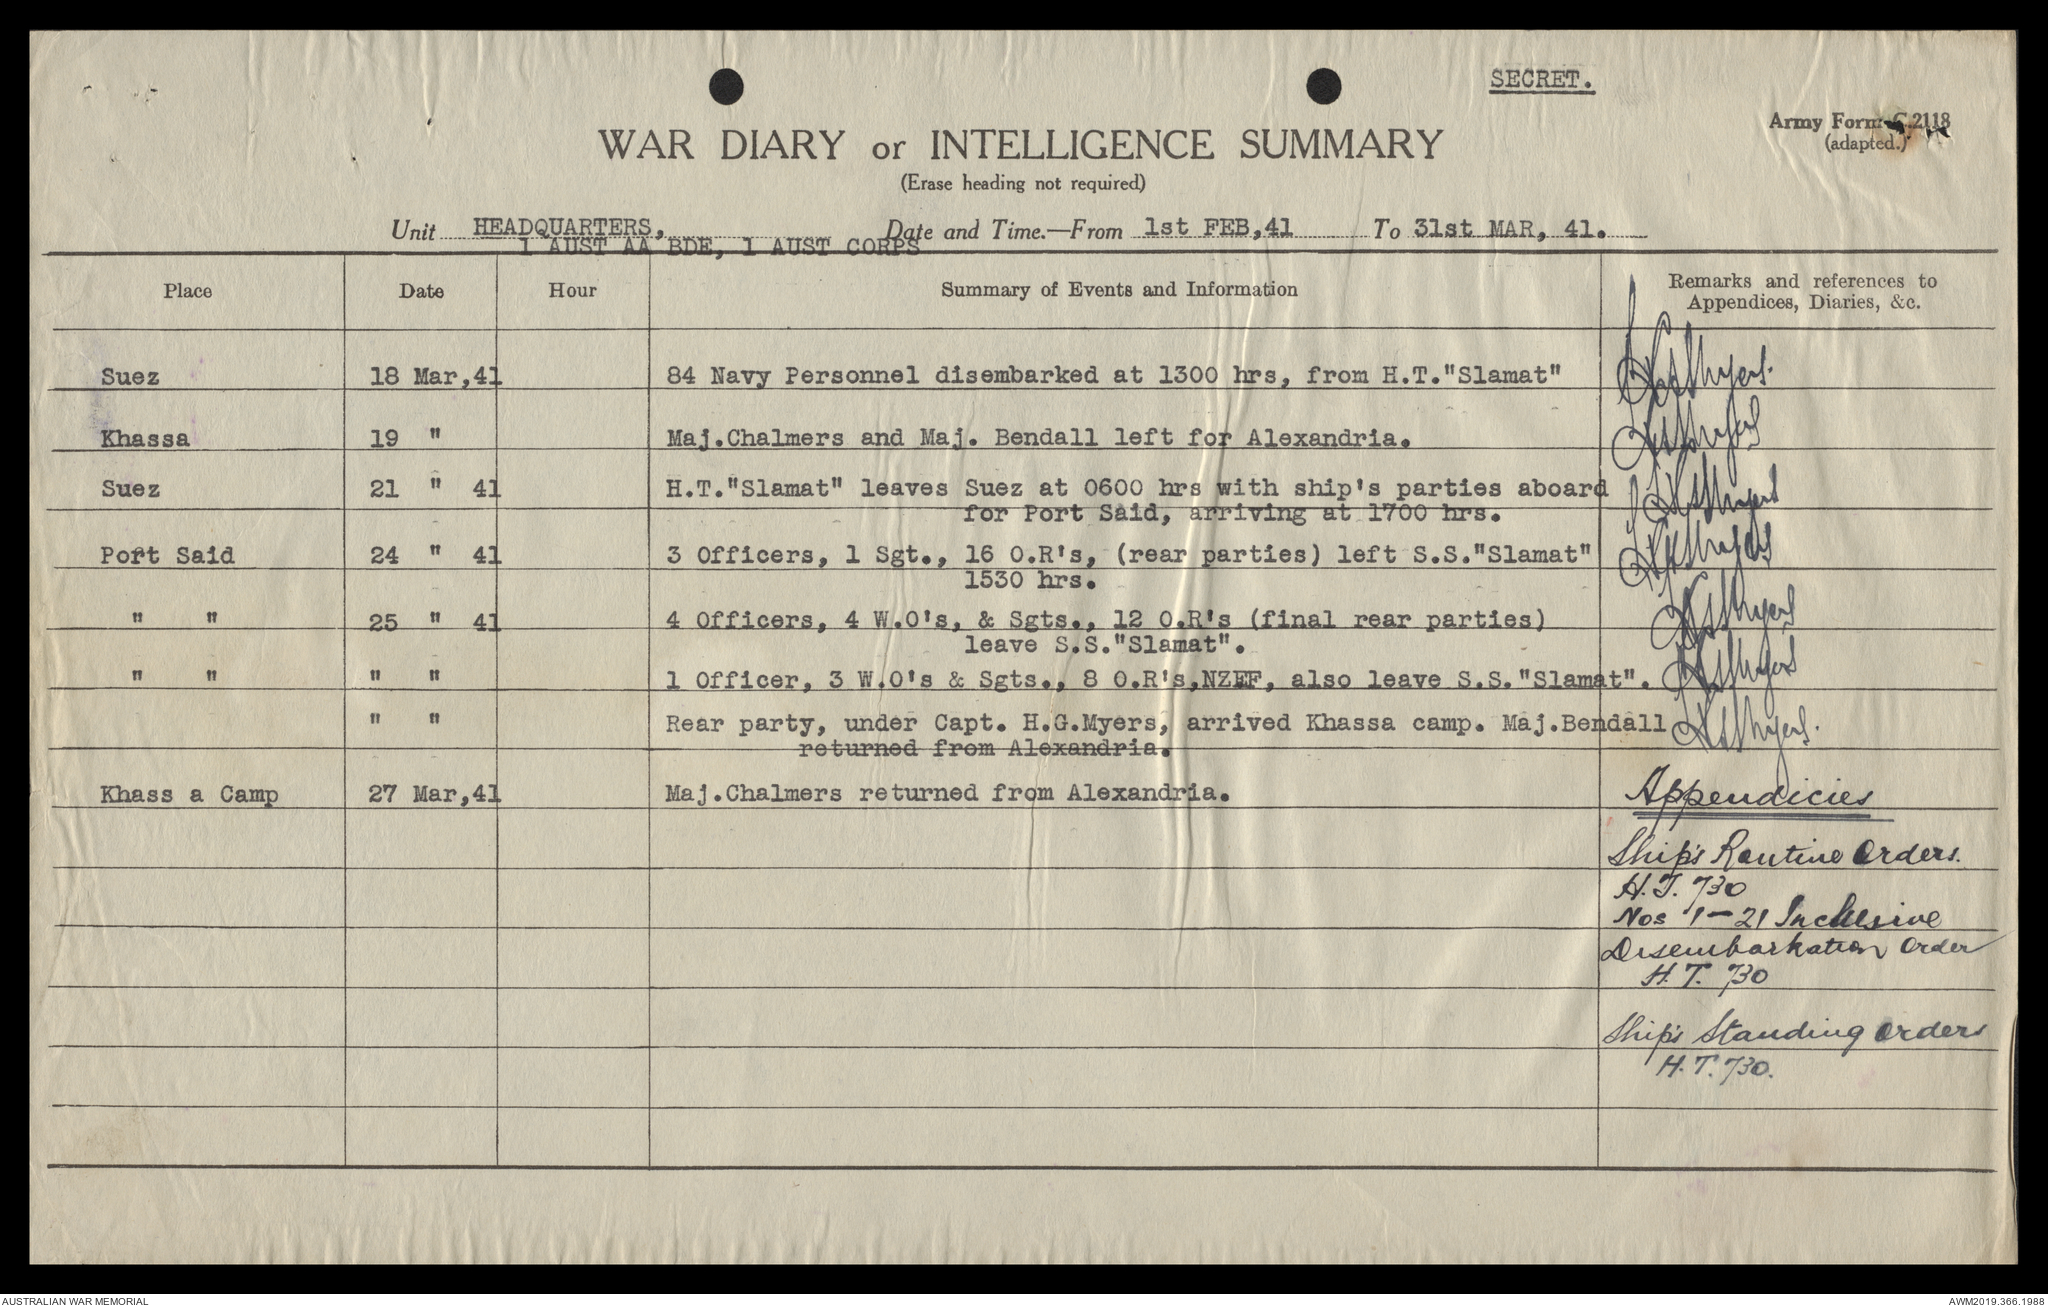 SECRET.
Army Form C.2118
(adapted.)
WAR DIARY or INTELLIGENCE SUMMARY
(Erase heading not required)
Unit HEADQUARTERS, Date and Time.—From 1st FEB,41 To 31st MAR, 41.
1 AUST AA BDE, 1 AUST CORPS
Place Date Hour Summary of Events and Information Remarks and references to
Appendices, Diaries, &c.
Suez 18 Mar,41 84 Navy Personnel disembarked at 1300 hrs, from H.T."Slamat" HGMyers.
Khassa 19 " Maj.Chalmers and Maj. Bendall left for Alexandria. HGMyers
Suez 21 " 41 H.T."Slamat" leaves Suez at 0600 hrs with ship's parties aboard HGMyers
for Port Said, arriving at 1700 hrs.
Port Said 24 " 41 3 Officers, 1 Sgt., 16 O.R's, (rear parties) left S.S."Slamat" HGMyers
1530 hrs.
" " 25 " 41 4 Officers, 4 W.O's, & Sgts., 12 O.R's (final rear parties) HGMyers
leave S.S."Slamat".
" " " " 1 Officer, 3 W.O's & Sgts., 8 O.R's,NZEF, also leave S.S."Slamat". HGMyers
" " Rear party, under Capt. H.G.Myers, arrived Khassa camp. Maj.Bendall HGMyers.
returned from Alexandria.
Khass a Camp 27 Mar,41 Maj.Chalmers returned from Alexandria. Appendicies
Ship's Routine Orders.
H.T. 730
Nos 1-21 Inclusive
Disembarkation Order
H.T. 730
Ship's Standing Orders
H.T. 730.
AUSTRALIAN WAR MEMORIAL AWM2019.366.1988